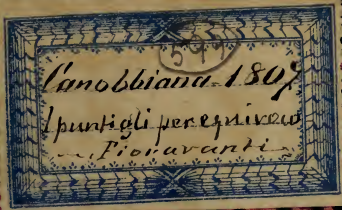 599
Canobbiana 1807
I puntigli per equivoco
Fioravanti